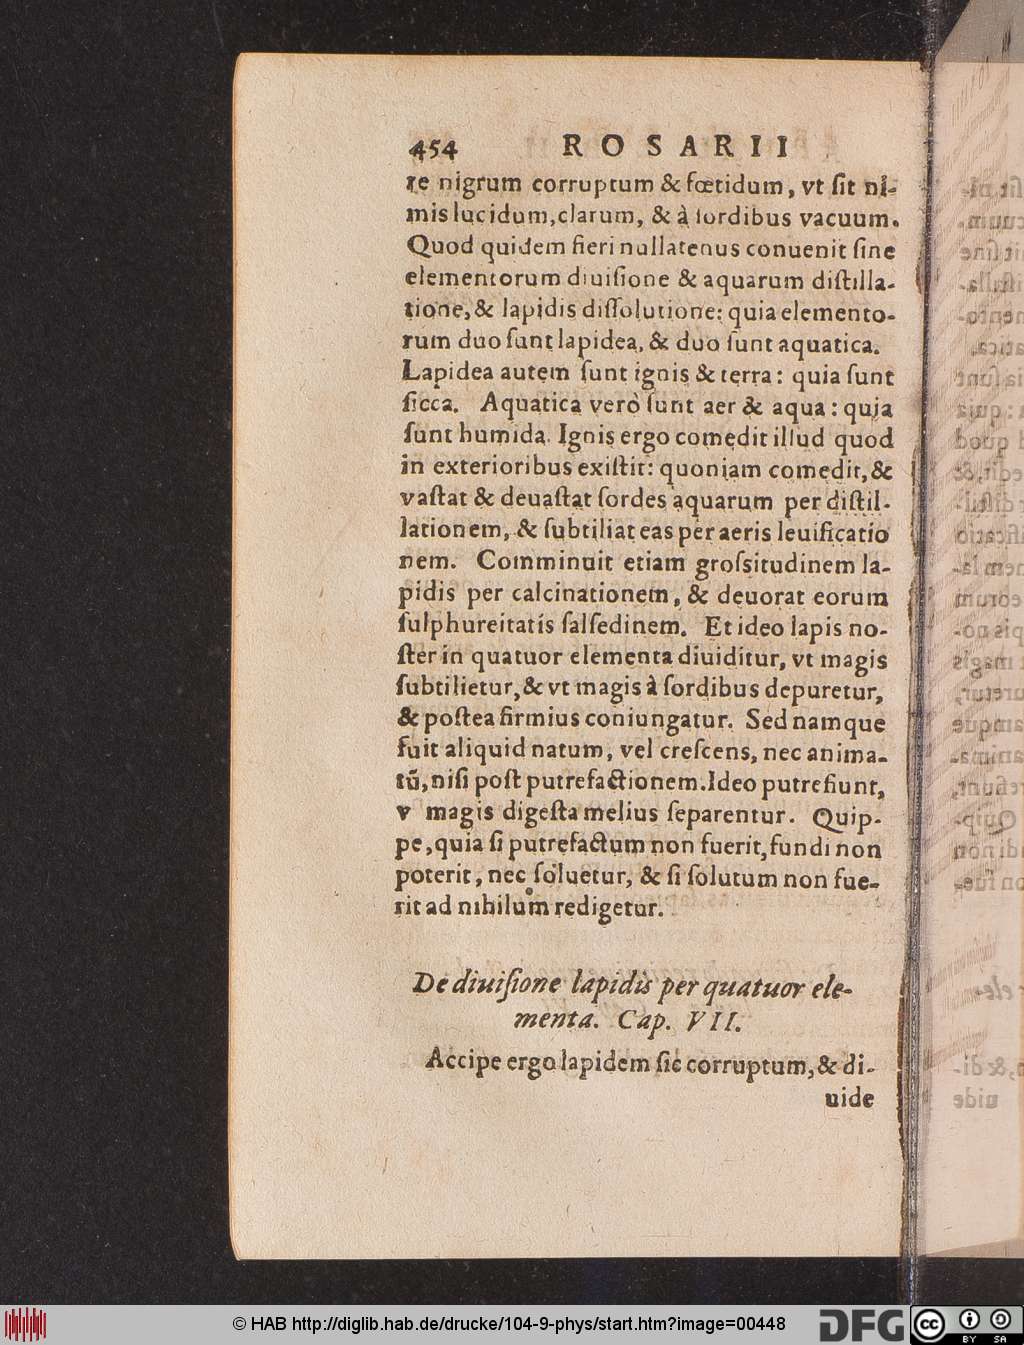 454 ROSARII
re nigrum corruptum & fœtidum, vt ſit ni-
mis lucidum, clarum, & à ſordibus vacuum.
Quod quidem fieri nullatenus conuenit ſine
elementorum diuiſione & aquarum diſtilla-
tione, & lapidis diſſolutione: quia elemento-
rum duo ſunt lapidea, & duo ſunt aquatica.
Lapidea autem ſunt ignis & terra: quia ſunt
ſicca. Aquatica verò ſunt aer & aqua: quia
ſunt humida. Ignis ergo comedit illud quod
in exterioribus exiſtit: quoniam comedit, &
vaſtat & deuaſtat ſordes aquarum per diſtil-
lationem, & ſubtiliat eas per aeris leuificatio
nem. Comminuit etiam groſsitudinem la-
pidis per calcinationem, & deuorat eorum
ſulphureitatis ſalſedinem. Et ideo lapis no-
ſter in quatuor elementa diuiditur, vt magis
ſubtilietur, & vt magis à ſordibus depuretur,
& poſtea firmius coniungatur. Sed namque
fuit aliquid natum, vel creſcens, nec anima-
tũ, niſi poſt putrefactionem. Ideo putrefiunt,
v magis digeſta melius ſeparentur. Quip-
pe, quia ſi putrefactum non fuerit, fundi non
poterit, nec ſoluetur, & ſi ſolutum non fue-
rit ad nihilum redigetur.
De diuiſione lapidis per quatuor ele-
menta. Cap. VII.
Accipe ergo lapidem ſic corruptum, & di-
uide
© HAB http://diglib.hab.de/drucke/104-9-phys/start.htm?image=00448
DFG
cc
BY SA